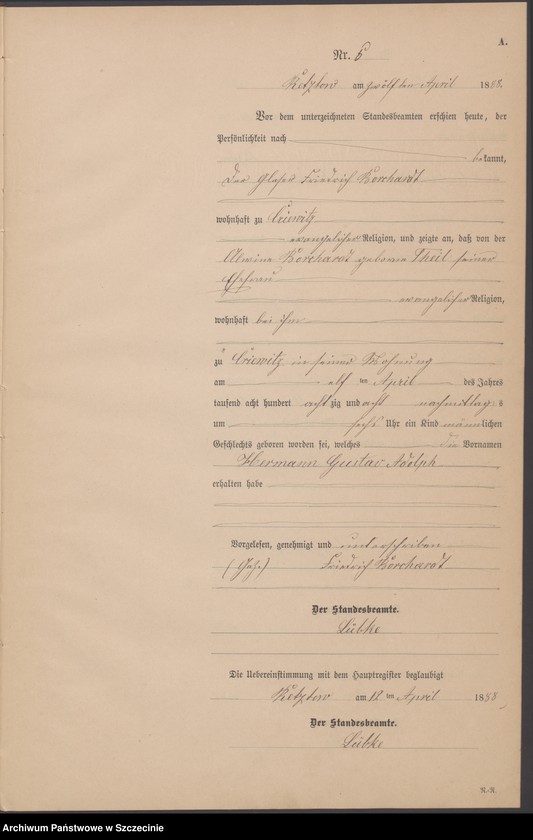 A.
Nr. 6
Retzkow am zwölften April 1888.
Vor dem unterzeichneten Standesbeamten erschien heute, der
Persönlichkeit nach
bekannt,
der Friedrich Borchardt
wohnhaft zu Criewitz
evangelischer Religion, und zeigte an, daß von der
Alwine Borchardt geborene Theil seiner
Ehefrau
evangelischer Religion,
wohnhaft bei ihm
zu Criewitz in seiner Wohnung
am elf ten April des Jahres
tausend acht hundert achtzig und acht nachmittags
um sechs Uhr ein Kind männlichen
Geschlechts geboren worden sei, welches die Vornamen
Hermann Gustav Adolph
erhalten habe
Vorgelesen, genehmigt und unterschrieben
(Gez.) Friedrich Borchardt
Der Standesbeamte.
Lübke
Die Uebereinstimmung mit dem Hauptregister beglaubigt
Retzkow am 12 ten April 1888
Der Standesbeamte.
Lübke
Archiwum Państwowe w Szczecinie